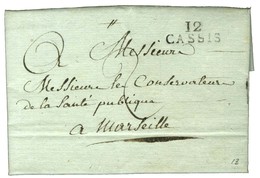 12
CASSIS
A Messieurs
Messieurs les Conservateurs
de la Santé publique
a Marseille
13